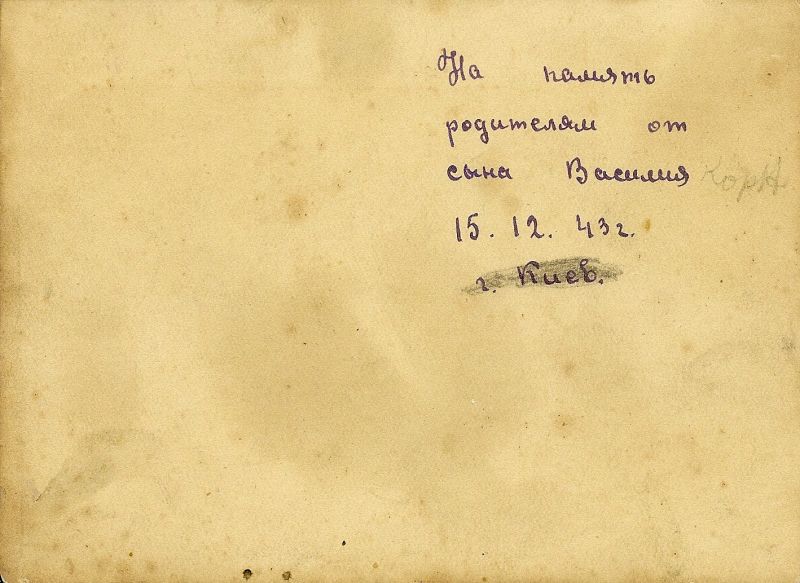 На память
родителям от
сына Василия
15. 12. 43г.
г. Киев.